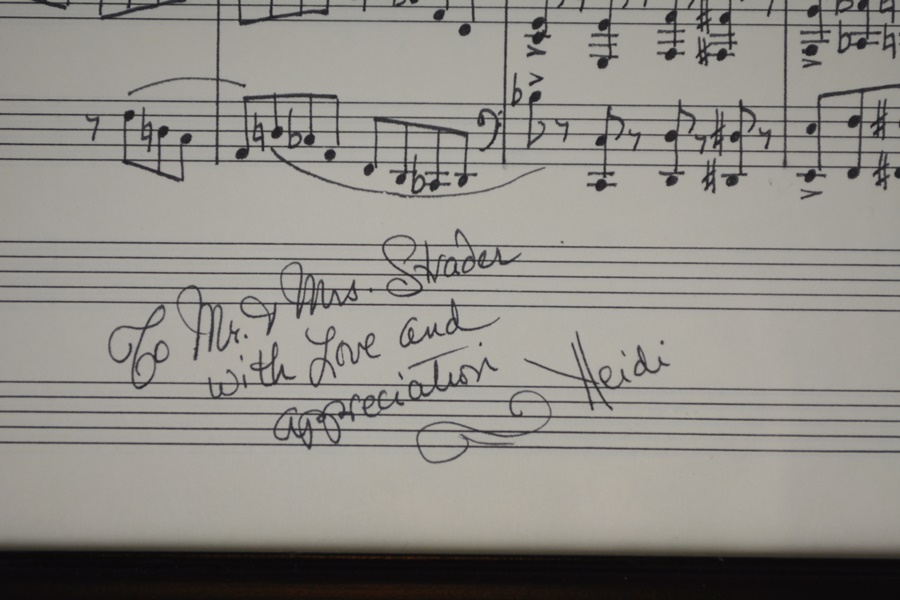 To Mr. & Mrs. Strader
with Love and
appreciation
Heidi